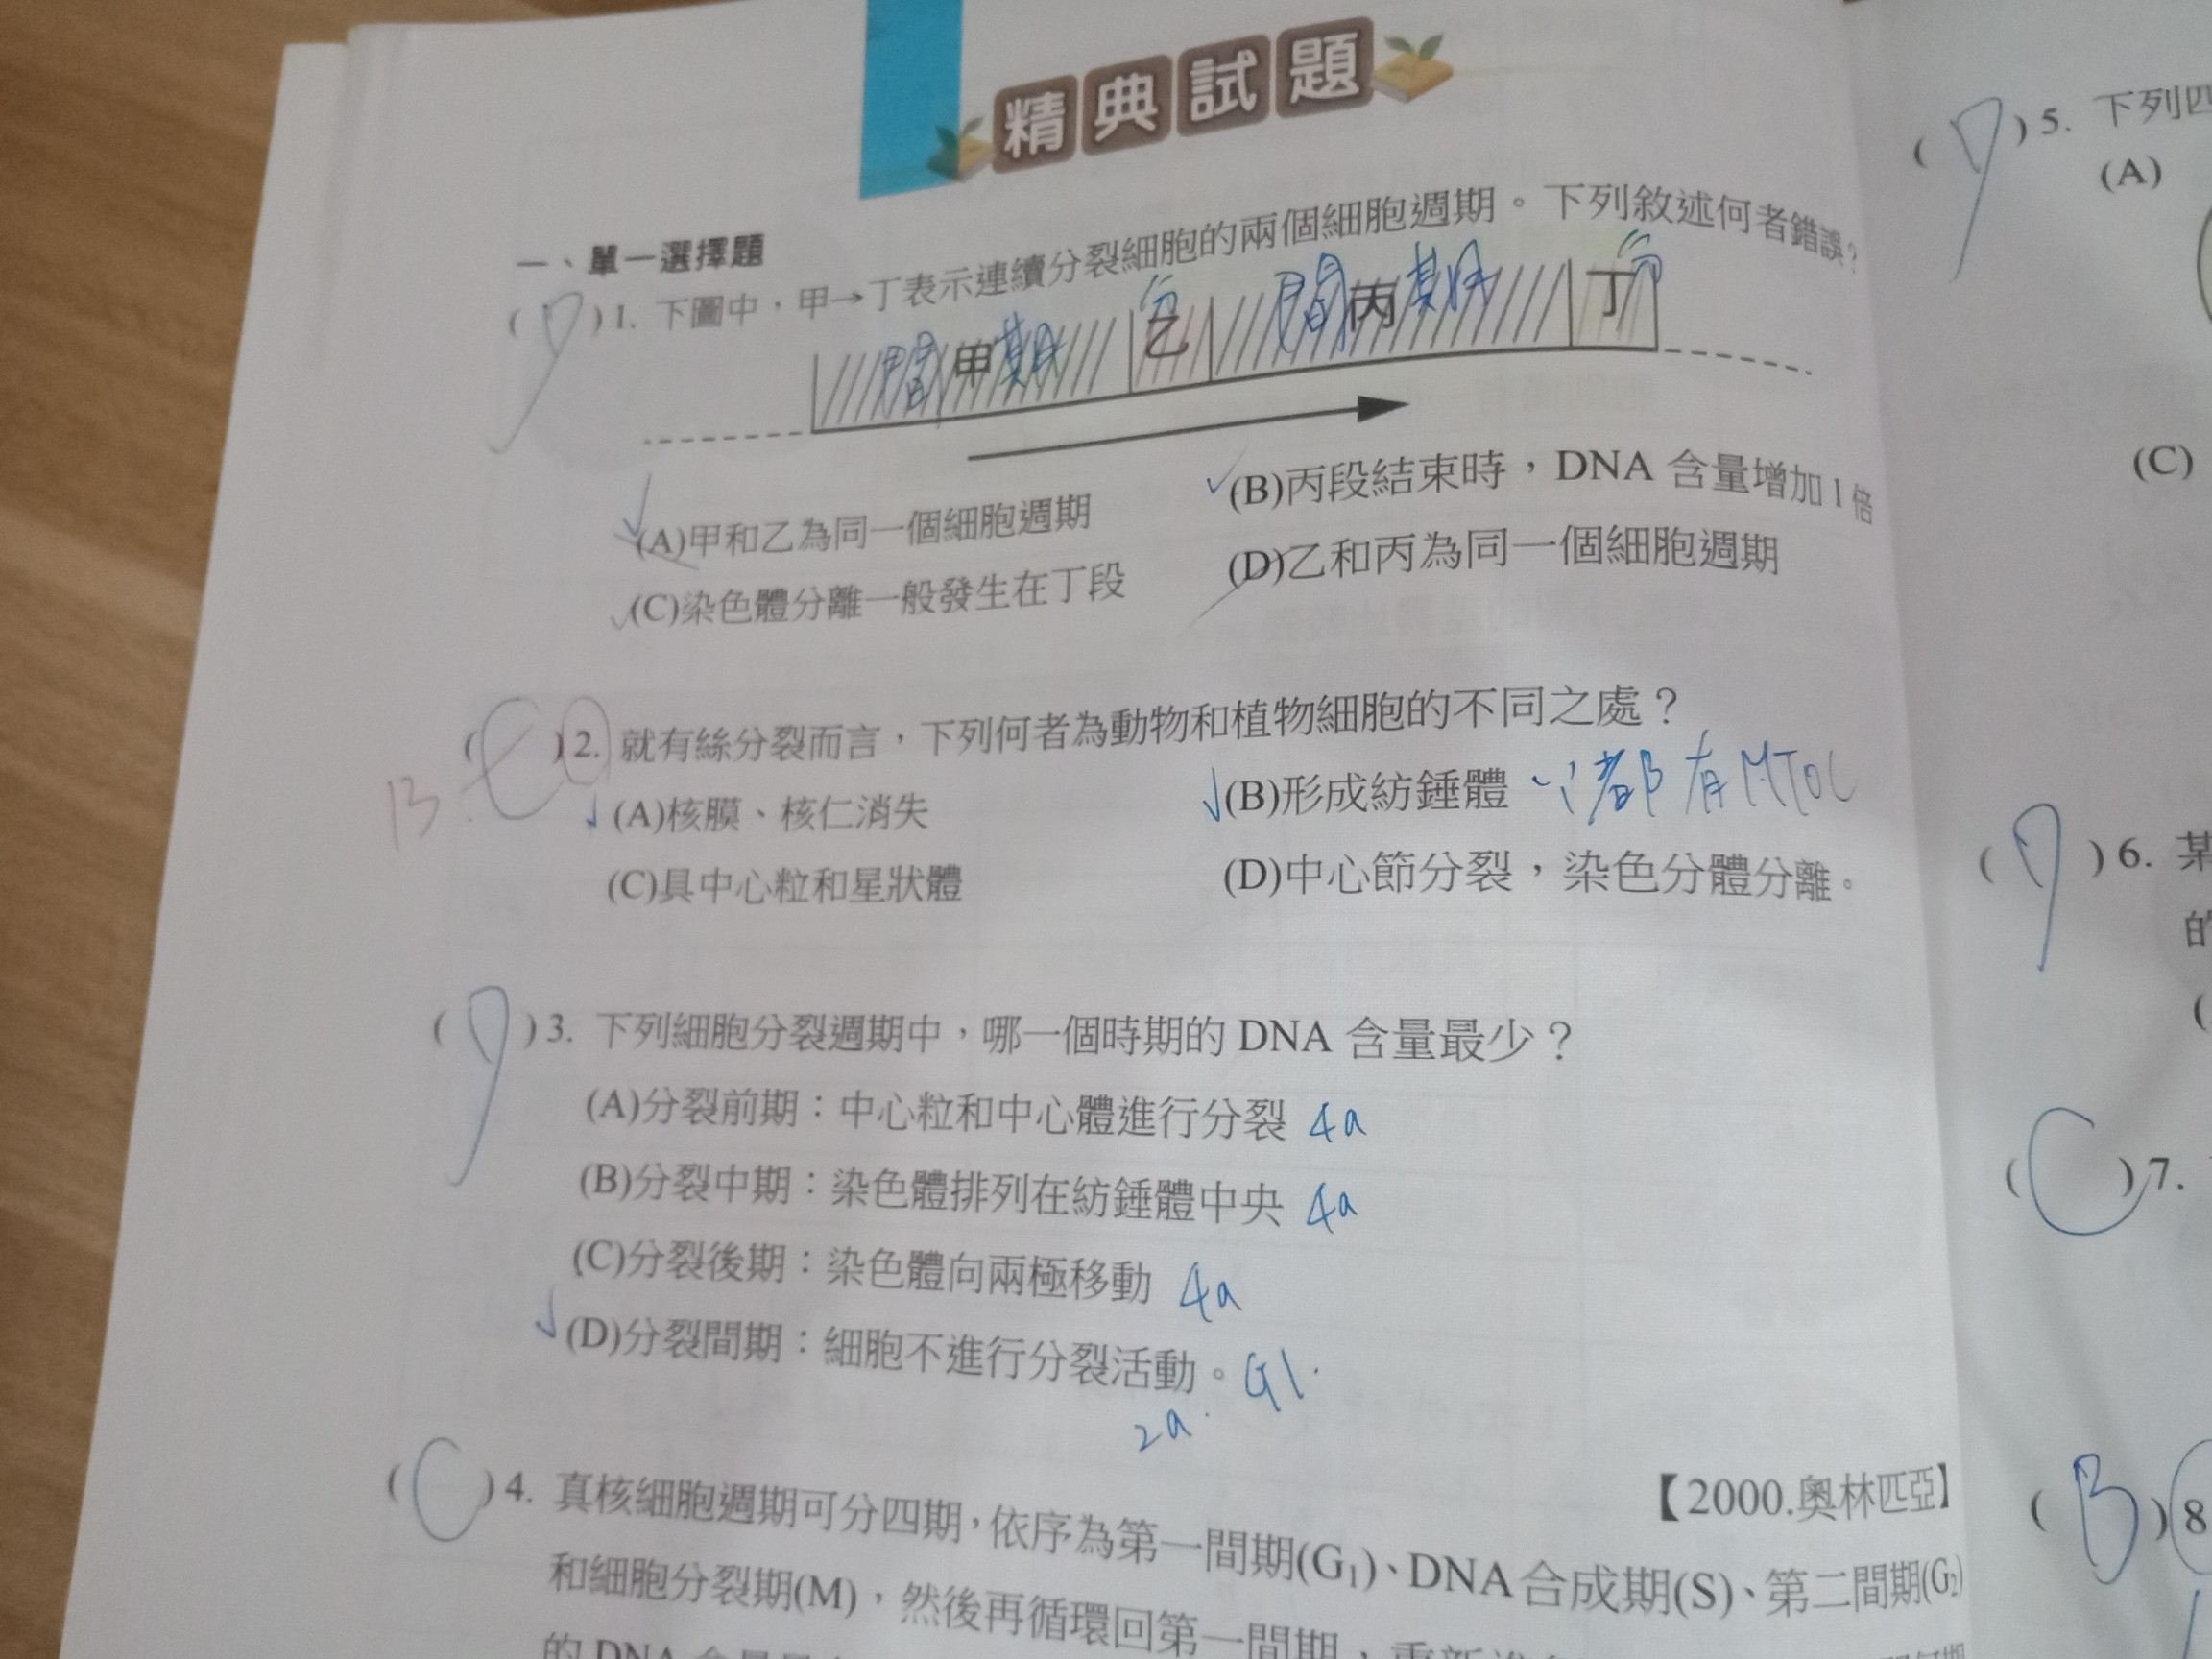 精典試題
一、單一選擇題
(D)1. 下圖中，甲→丁表示連續分裂細胞的兩個細胞週期。下列敘述何者錯誤？
間 甲 期 乙 分 間 丙 期 丁 分
(A)甲和乙為同一個細胞週期 (B)丙段結束時，DNA 含量增加1倍
(C)染色體分離一般發生在丁段 (D)乙和丙為同一個細胞週期
B. (C)2. 就有絲分裂而言，下列何者為動物和植物細胞的不同之處？
(A)核膜、核仁消失 (B)形成紡錘體 都有MTOC
(C)具中心粒和星狀體 (D)中心節分裂，染色分體分離。
(D)3. 下列細胞分裂週期中，哪一個時期的 DNA 含量最少？
(A)分裂前期：中心粒和中心體進行分裂 4a
(B)分裂中期：染色體排列在紡錘體中央 4a
(C)分裂後期：染色體向兩極移動 4a
(D)分裂間期：細胞不進行分裂活動。G1.
2a.
【2000.奧林匹亞】
(C)4. 真核細胞週期可分四期，依序為第一間期(G₁)、DNA合成期(S)、第二間期(G₂)
和細胞分裂期(M)，然後再循環回第一間期，重新
的 DNA 含量
(D)5. 下列四
(A)
(C)
(D)6. 某
的
(C)7.
(B)8